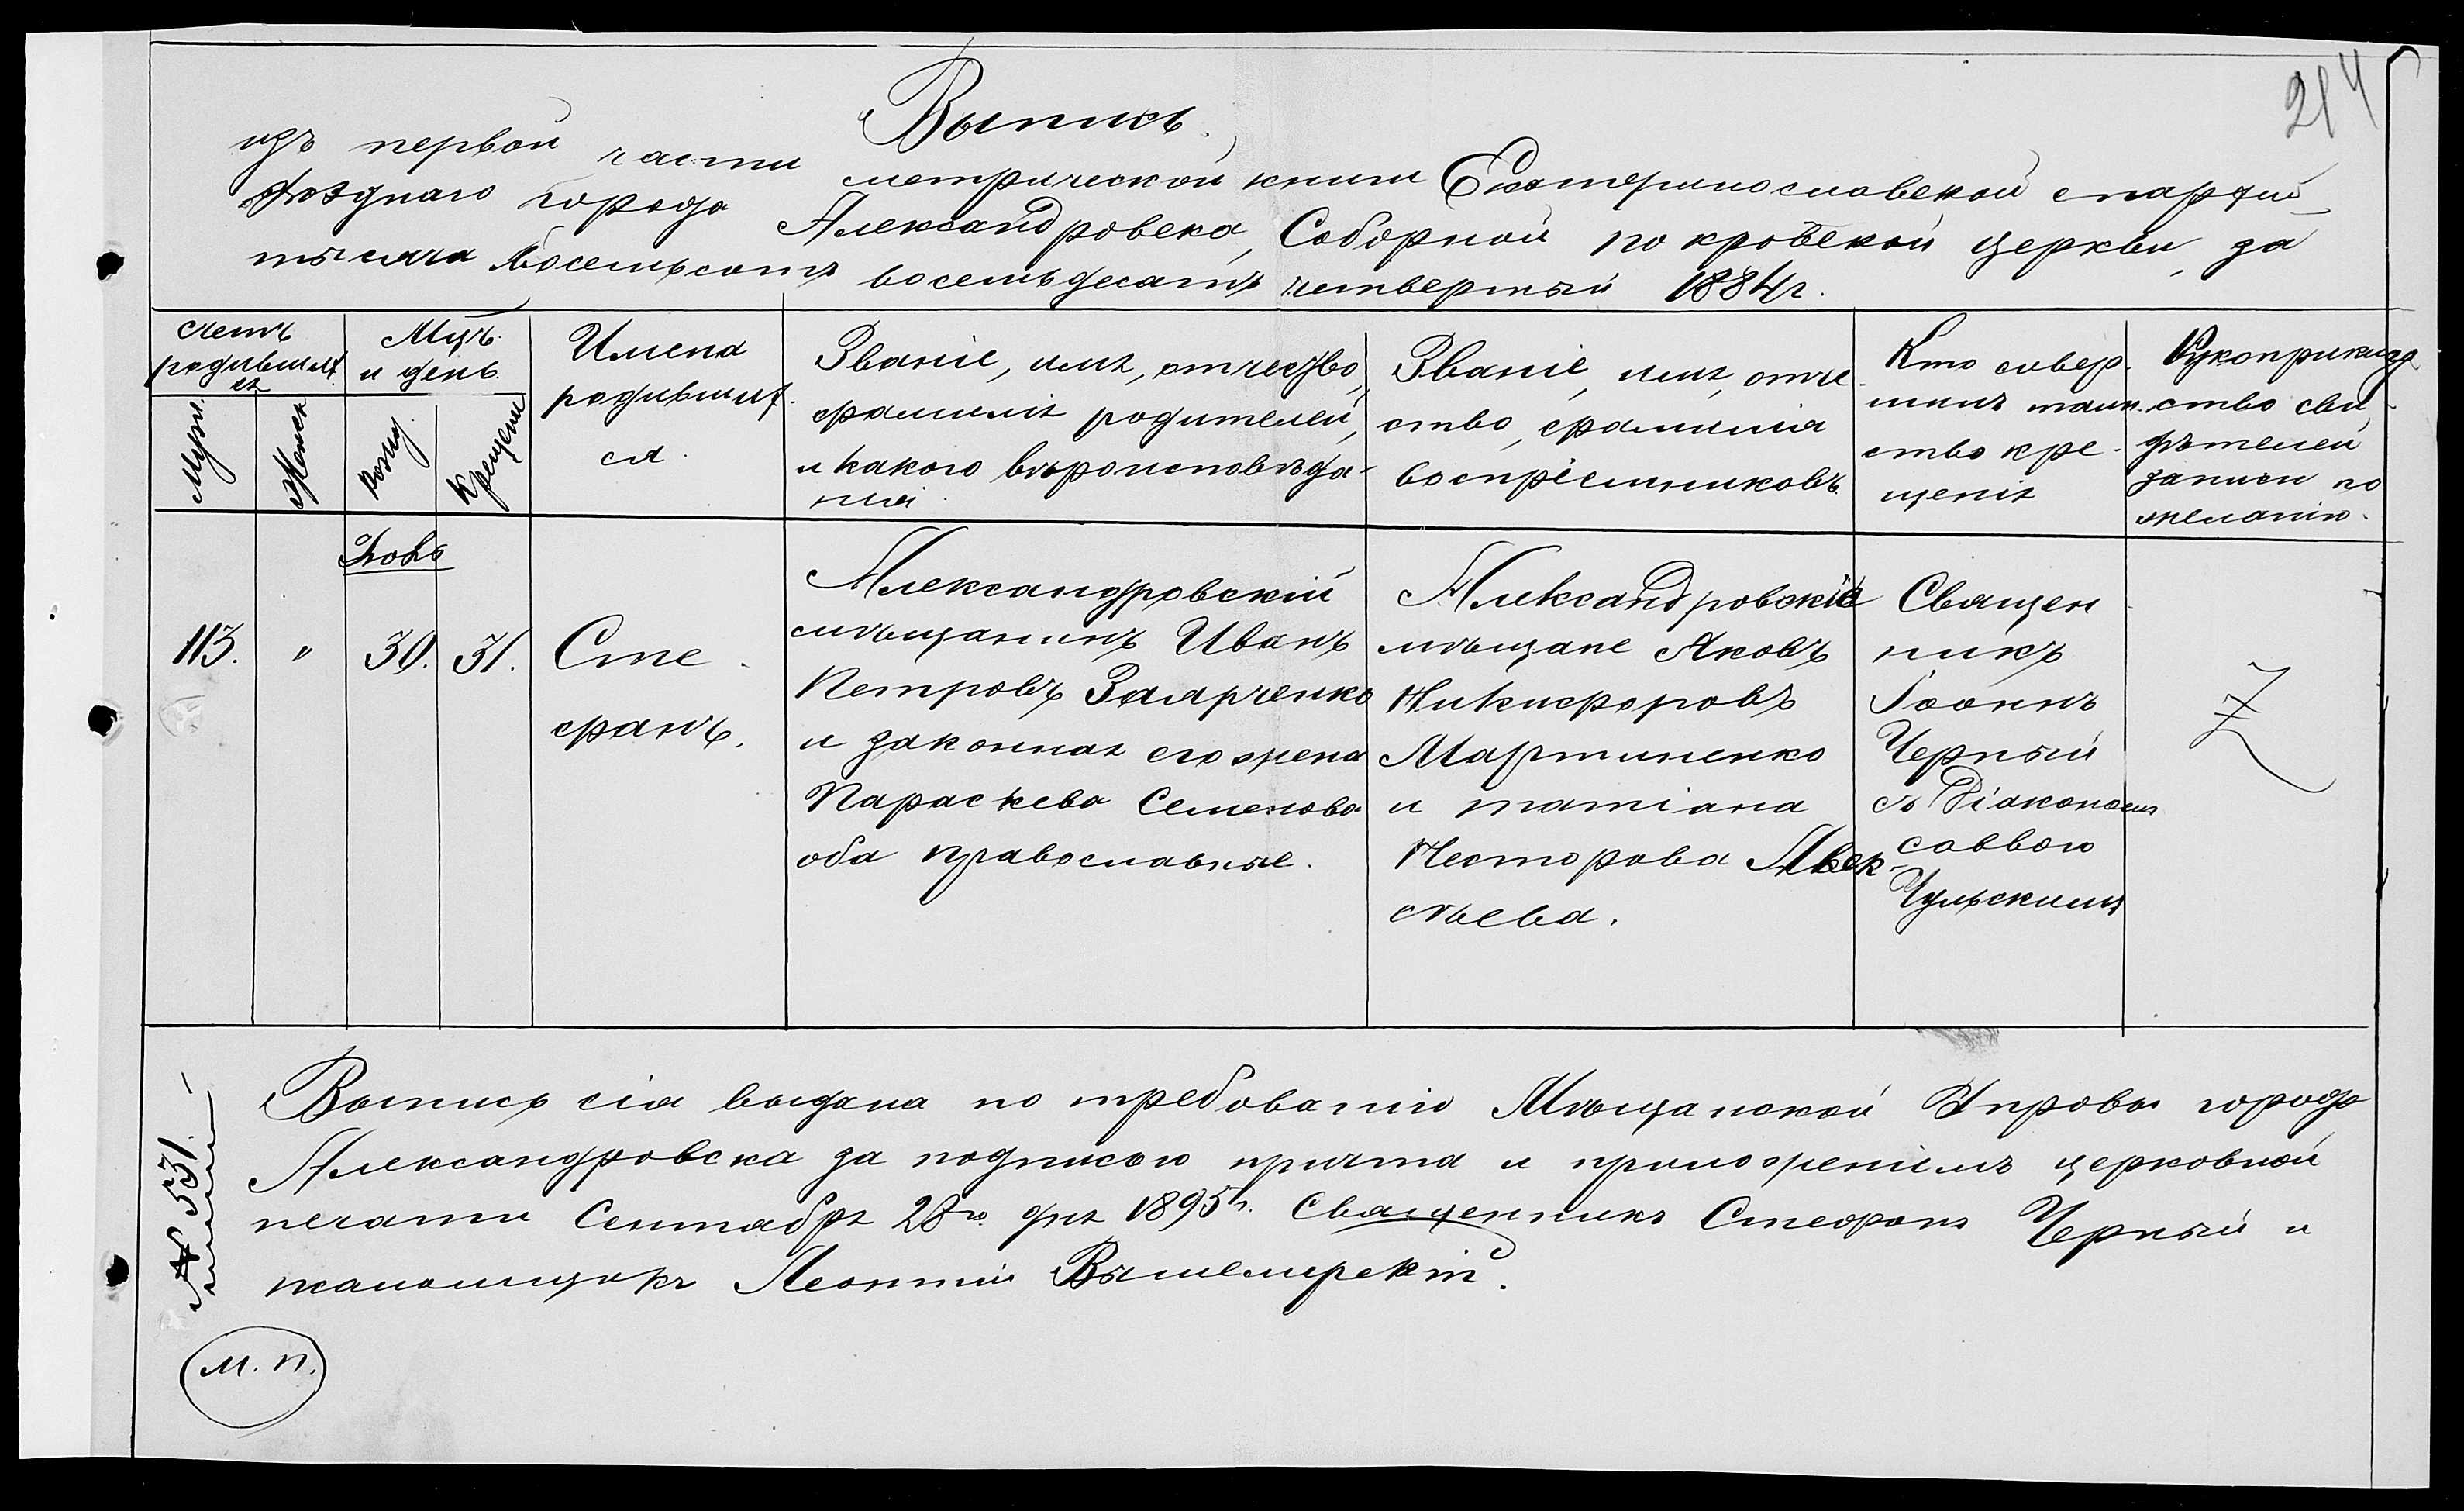 214
Выпись.
изъ первой части метрической книги Екатеринославской епархіи
уѣзднаго города Александровска, Соборной покровской церкви, за
тысяча восемьсотъ восемьдесятъ четвертый 1884 г.
счетъ
родившихъ
ся
Муж.
Женск
Мцъ.
и день.
Рожд.
Крещенія
Имена
родивших
ся.
Званіе, имя, отчество,
фамилія родителей,
и какого вѣроисповѣда-
нія.
Званіе, имя, отче-
ство, фамилія
воспріемниковъ.
Кто совер-
шилъ таин-
ство кре-
щенія
Рукоприклад
ство сви-
дѣтелей
записи по
желанію.
113.
"
30.
31.
Сте-
фанъ.
Александровскій
мѣщанинъ Иванъ
Петровъ
и законная его жена
Параскева Семенова
оба православные.
Александровскіе
мѣщане Яковъ
Никифоровъ
Мартиненко
и татіана
Несторова
Священ
никъ
Іоаннъ
Черный
съ Діакономъ
саввою
Выпись сія выдана по требованію Мѣщанской Управы города
Александровска за подписью причта и приложеніемъ церковной
печати Сентября 28го дня 1895 г. Священникъ Стефанъ Черный и
псаломщикъ Леонтій Вышемирскій.
№ 531.
М. П.